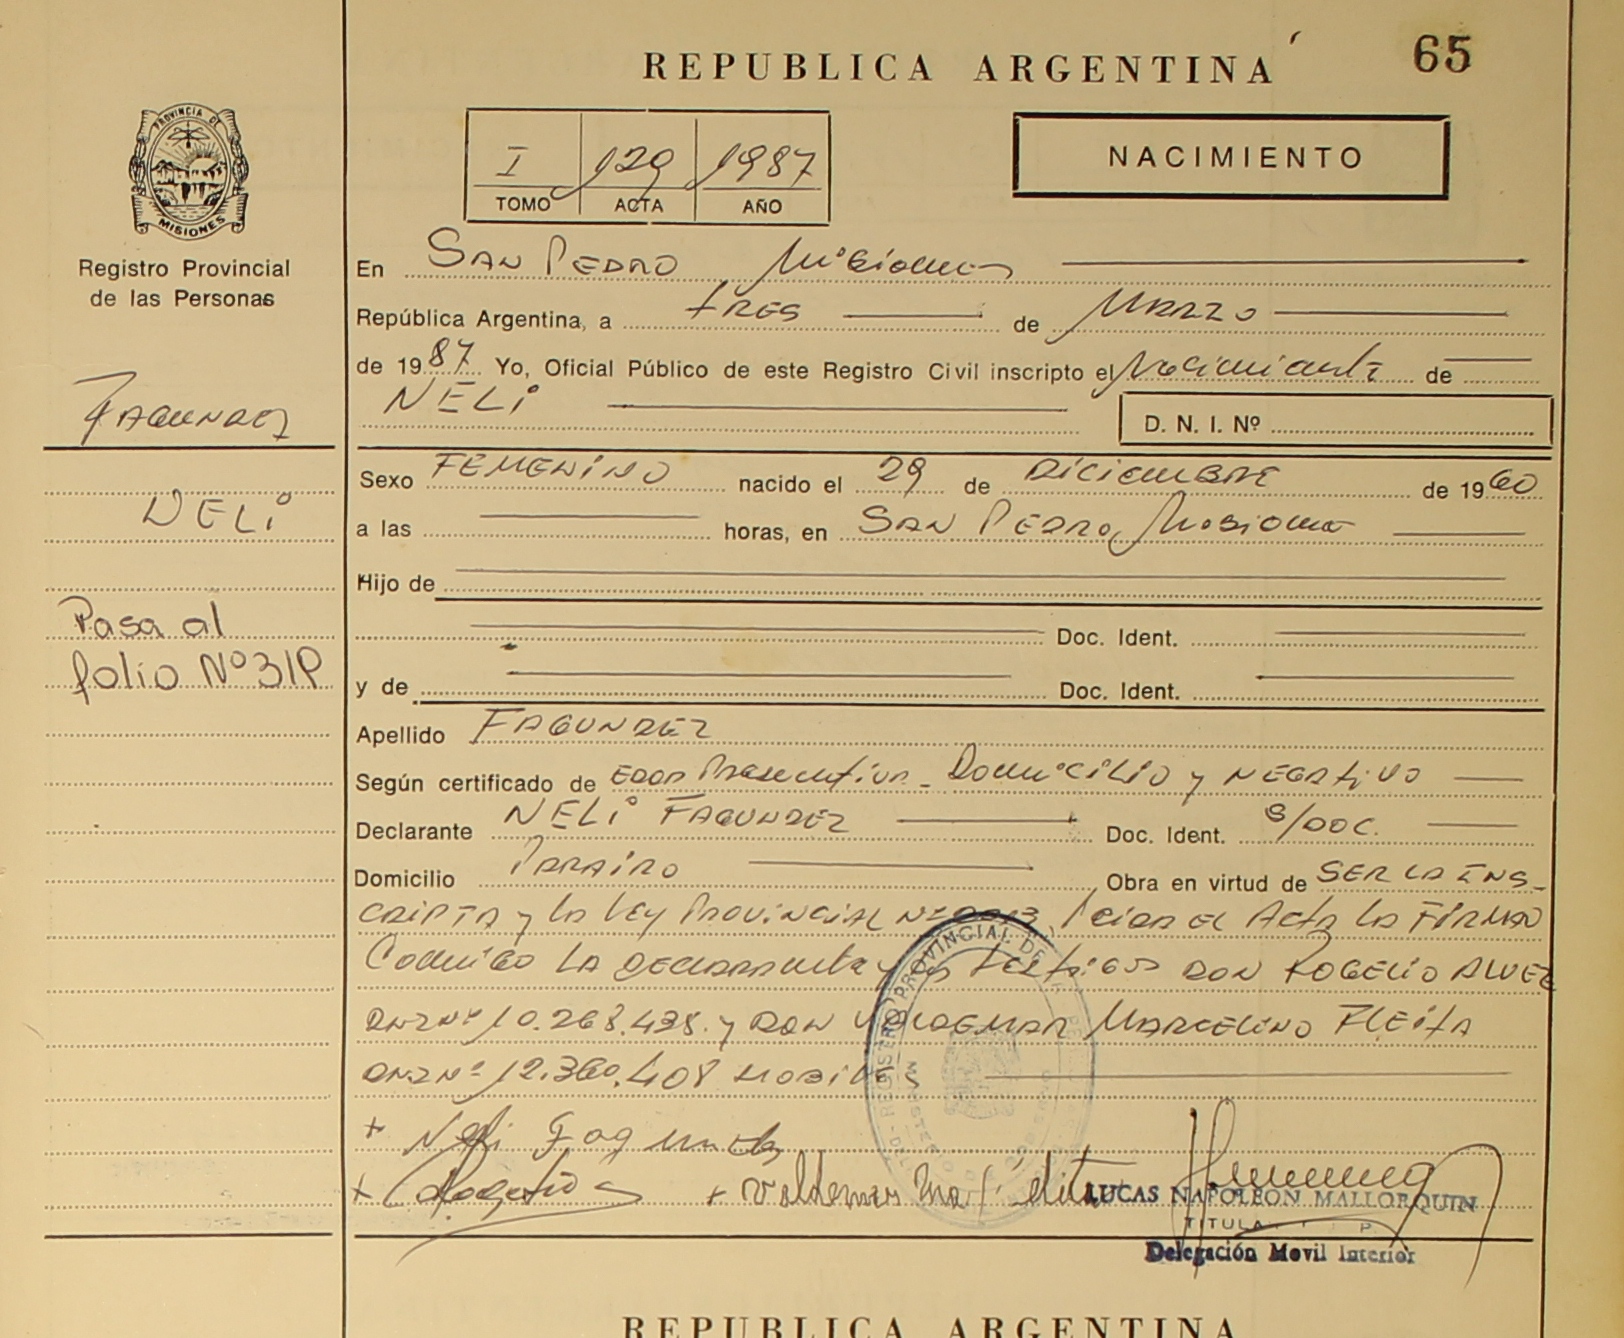 REPUBLICA ARGENTINA
65
PROVINCIA DE
MISIONES
Registro Provincial
de las Personas
I 129 1987
TOMO ACTA AÑO
NACIMIENTO
En San Pedro Misiones
República Argentina, a tres de Marzo
de 1987 Yo, Oficial Público de este Registro Civil inscripto el Nacimiento de
NELI
D. N. I. Nº
FAGUNDEZ
NELI
Pasa al
folio Nº 31P
Sexo FEMENINO nacido el 29 de DICIEMBRE de 1960
a las horas, en SAN PEDRO, Misiones
Hijo de
Doc. Ident.
y de Doc. Ident.
Apellido FAGUNDEZ
Según certificado de EDAD Presuntiva - Domicilio y NEGATIVO
Declarante NELI FAGUNDEZ Doc. Ident. S/DOC.
Domicilio PARAISO Obra en virtud de SER LA INS-
CRIPTA y LA LEY PROVINCIAL Leida el Acta LA FIRMAN
Conmigo LA DECLARANTE y los testigos DON ROGELIO ALVEZ
DNI Nº 10.268.438. y DON VALDEMAR MARCELINO FLEITA
DNI Nº 12.360.408 HABILES
+ Neli Fagundez
+ Rogelio + Valdemar
LUCAS NAPOLEON MALLORQUIN
TITULAR
Delegación Movil Interior
REGISTRO PROVINCIAL DE
REPUBLICA ARGENTINA